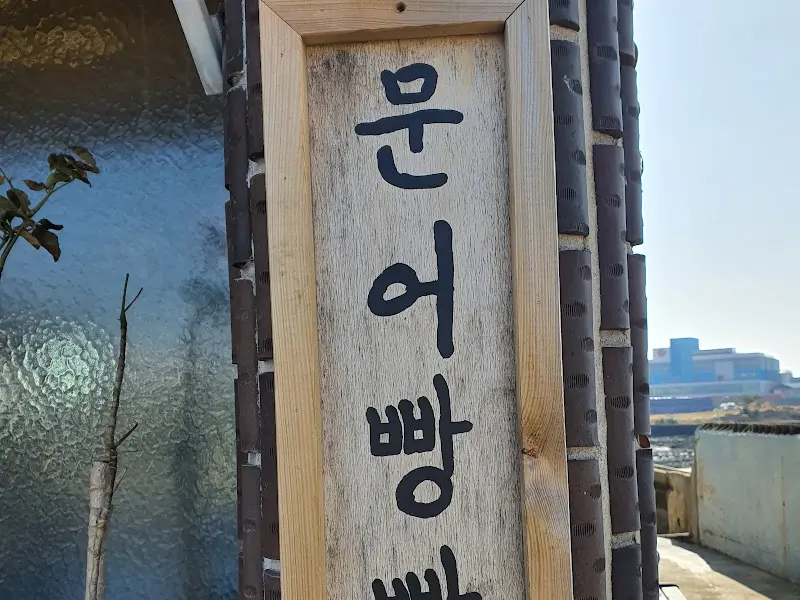 문어빵